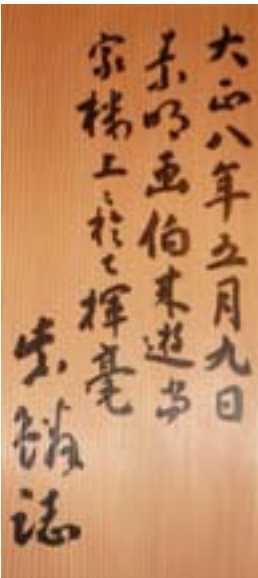 大正八年五月九日
素明画伯来遊当
家楼上ニ於て揮毫
誌